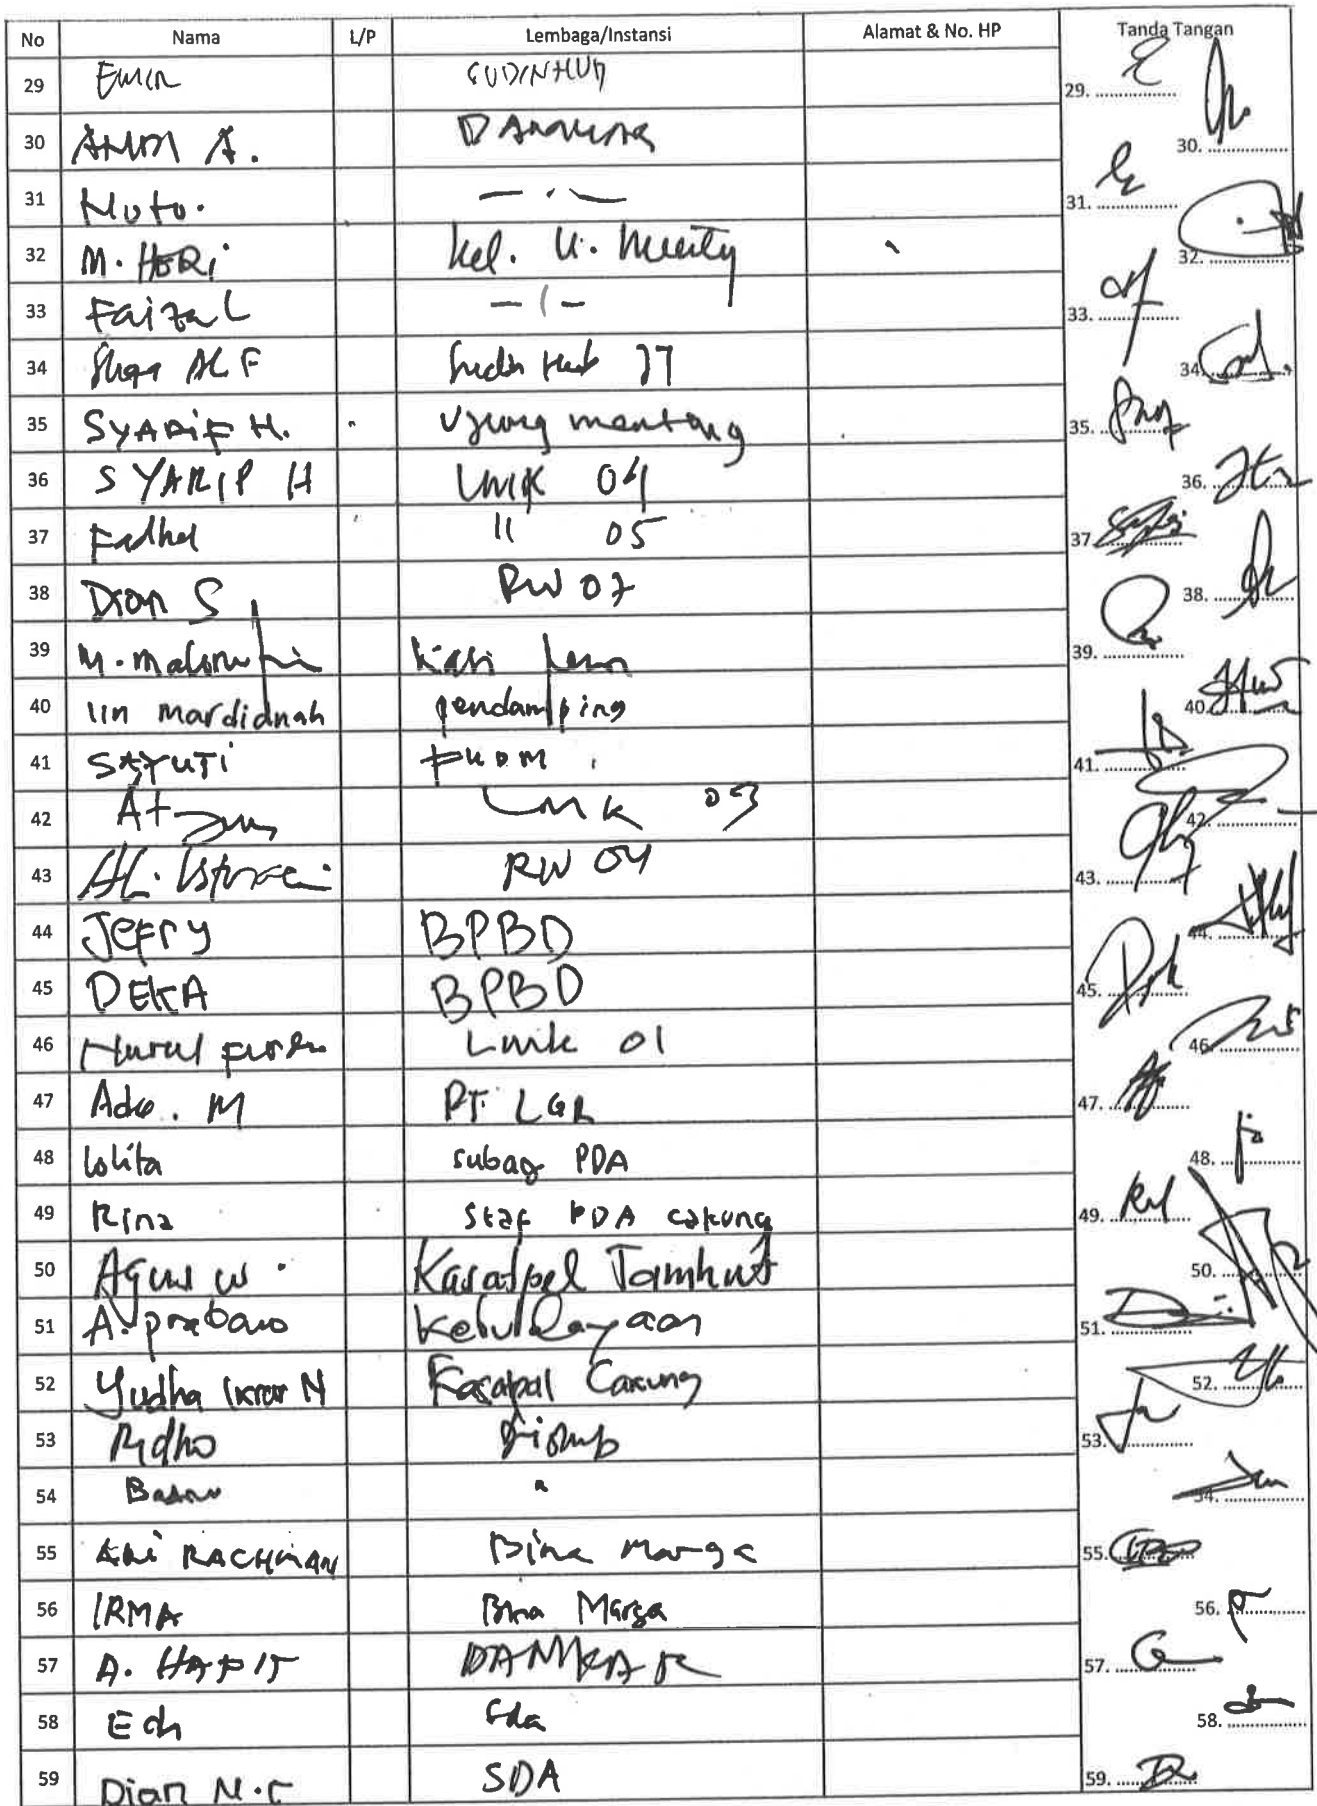 No Nama L/P Lembaga/Instansi Alamat & No. HP Tanda Tangan
29 Emir SUDINHUB 29.
30 A. DAMKAR 30.
31 Noto. — . — 31.
32 M. HERI Kel. U. Menteng 32.
33 Faizal — | — 33.
34 ALF Sudin Hub JT 34.
35 SYARIF H. Ujung menteng 35.
36 SYARIP H LMK 04 36.
37 Fadhel 11 05 37.
38 Dian S RW 07 38.
39 M. Kasi 39.
40 iin mardianah pendamping 40.
41 SAYUTI FKDM 41.
42 LMK 03 42.
43 RW 04 43.
44 Jefry BPBD 44.
45 DEKA BPBD 45.
46 Nurul Lmk 01 46.
47 Ade. M PT. LGR 47.
48 Lolita subag PDA 48.
49 Rina Staf PDA cakung 49.
50 Agus w. Kasatpel Tamhut 50.
51 A. prabowo Kebudayaan 51.
52 Yudha Ikrar N Kasapal Cakung 52.
53 Ridho 53.
54 54.
55 ARI RACHMAN Bina Marga 55.
56 IRMA Bina Marga 56.
57 A. HAPIT DAMKAR 57.
58 Edi Sda 58.
59 Dian N.C SDA 59.